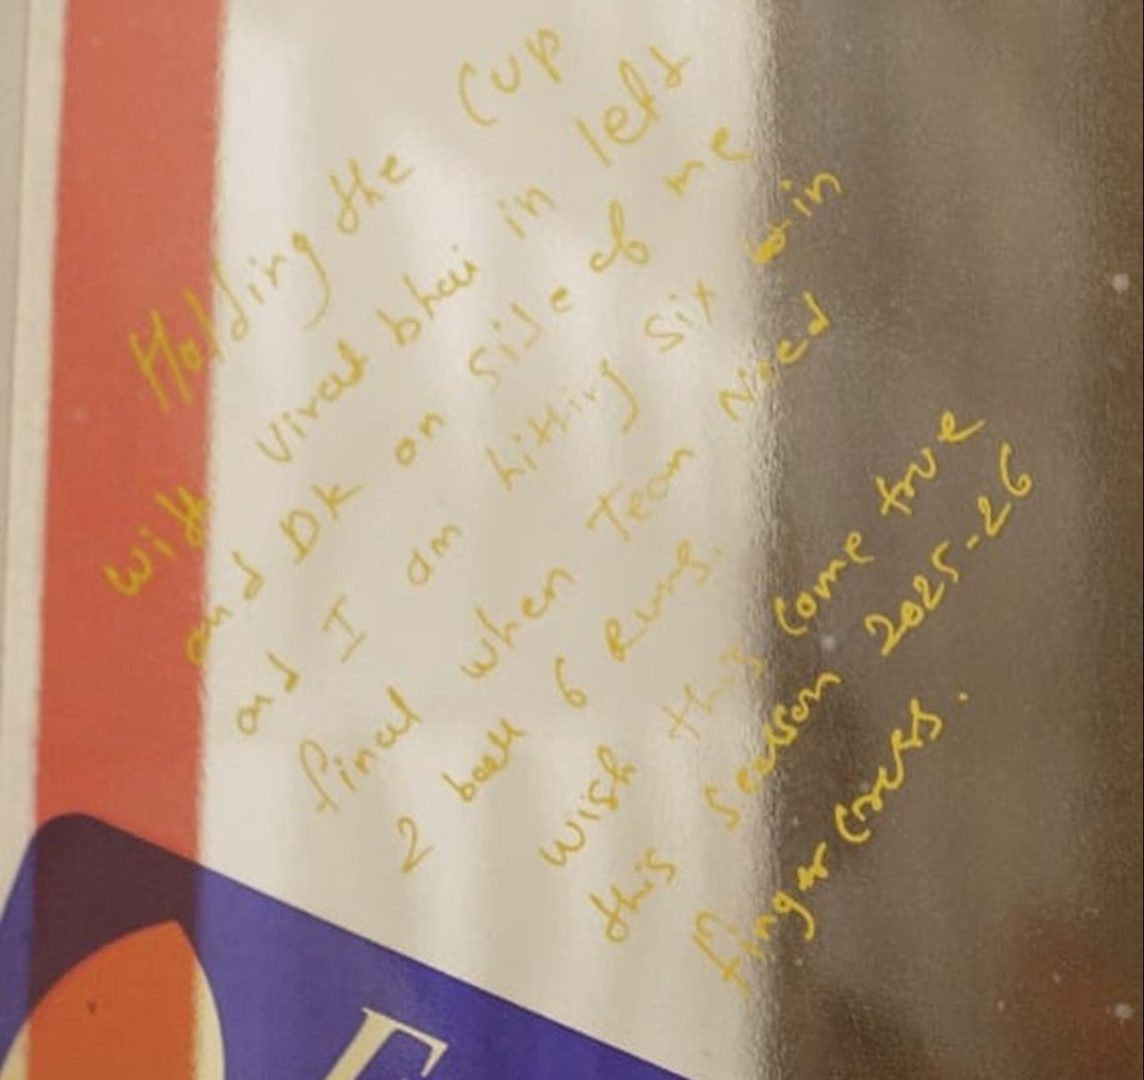 Holding the Cup
with Virat bhai in left
and DK on side of me
and I am hitting six in
final when Team Need
2 ball 6 Runs.
Wish this come true
this season 2025-26
finger cross.